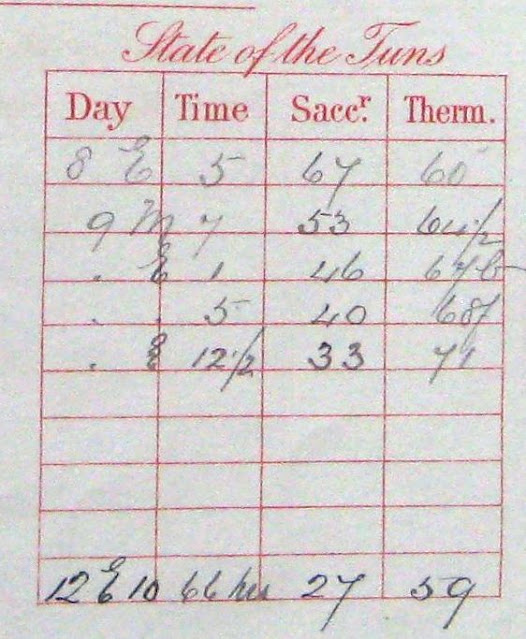 State of the Tuns
Day Time Saccr. Therm.
8 E 5 67 60
9 M 7 53 64 1/2
. E 1 46
. . 5 40
. E 12 1/2 33 71
12 E 10 66 hrs 27 59